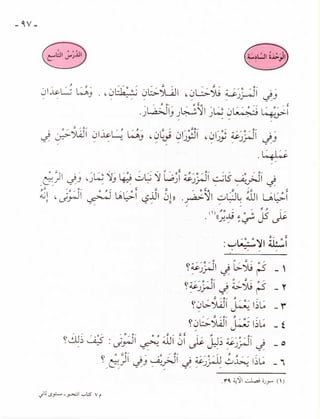 - ٩٧ -
الوَحْدَةُ السَّادِسَة
الدَّرْسُ التَّاسِع
وَفِي ٱلْمَزْرَعَةِ فَلَّاحَتَانِ، ٱلْفَلَّاحَتَانِ نَشِيْطَتَانِ، . وَهُمَا تُسَاعِدَانِ
أَخَوَيْهِمَا فَتَجْمَعَانِ ثِمَارَ ٱلْأَشْجَارِ وَٱلْخُضَارَ.
وَفِي ٱلْمَزْرَعَةِ ثَوْرَانِ، ٱلثَّوْرَانِ قَوِيَّانِ، وَهُمَا يُسَاعِدَانِ ٱلْفَلَّاحَيْنِ فِي
عَمَلِهِمَا.
فِي ٱلْخَرِيْفِ كَانَتِ ٱلْمَزْرَعَةُ أَرْضاً لَا نَبَاتَ فِيْهَا وَلَا ثِمَارَ، وَفِي ٱلرَّبِيْعِ
أَحْيَاهَا ٱللَّهُ بِالنَّبَاتِ ٱلْأَخْضَرِ. «إِنَّ ٱلَّذِي أَحْيَاهَا لَمُحْيِي ٱلْمَوْتَى، إِنَّهُ
عَلَى كُلِّ شَيْءٍ قَدِيْرٌ»(١).
أَسْئِلَةُ الِاسْتِيْعَابِ:
١ - كَمْ فَلَّاحاً فِي ٱلْمَزْرَعَةِ؟
٢ - كَمْ فَلَّاحَةً فِي ٱلْمَزْرَعَةِ؟
٣ - مَاذَا يَعْمَلُ ٱلْفَلَّاحَانِ؟
٤ - مَاذَا تَعْمَلُ ٱلْفَلَّاحَتَانِ؟
٥ - فِي ٱلْمَزْرَعَةِ دَلِيْلٌ عَلَى أَنَّ ٱللَّهَ يُحْيِي ٱلْمَوْتَى: كَيْفَ ذَلِكَ؟
٦ - مَاذَا يَحْدُثُ لِلْمَزْرَعَةِ فِي ٱلْخَرِيْفِ وَفِي ٱلرَّبِيْعِ ؟
(١) سورة فصلت الآية ٣٩.
م ٧ كتاب التعبير، مستوى ثاني